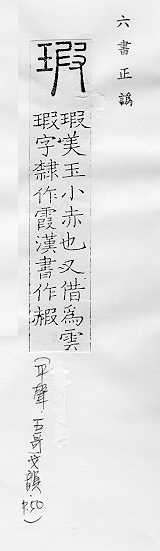 六書正譌
瑕
瑕美玉小赤也又借爲雲
瑕字隸作霞漢書作赮
(平聲 五哥戈韻. P.50)